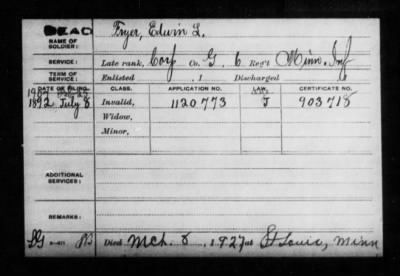 DEAD
NAME OF SOLDIER: Fryer, Edwin L.
SERVICE: Late rank, Corp Co. G. 6 Reg't Minn. Inf
TERM OF SERVICE: Enlisted , 1 Discharged
DATE OF FILING. CLASS. APPLICATION NO. LAW. CERTIFICATE NO.
1892 July 8 Invalid, 1120.773 J 903718
Widow,
Minor,
ADDITIONAL SERVICES:
REMARKS:
Died Mch. 8, 1927 at St Louis, Minn